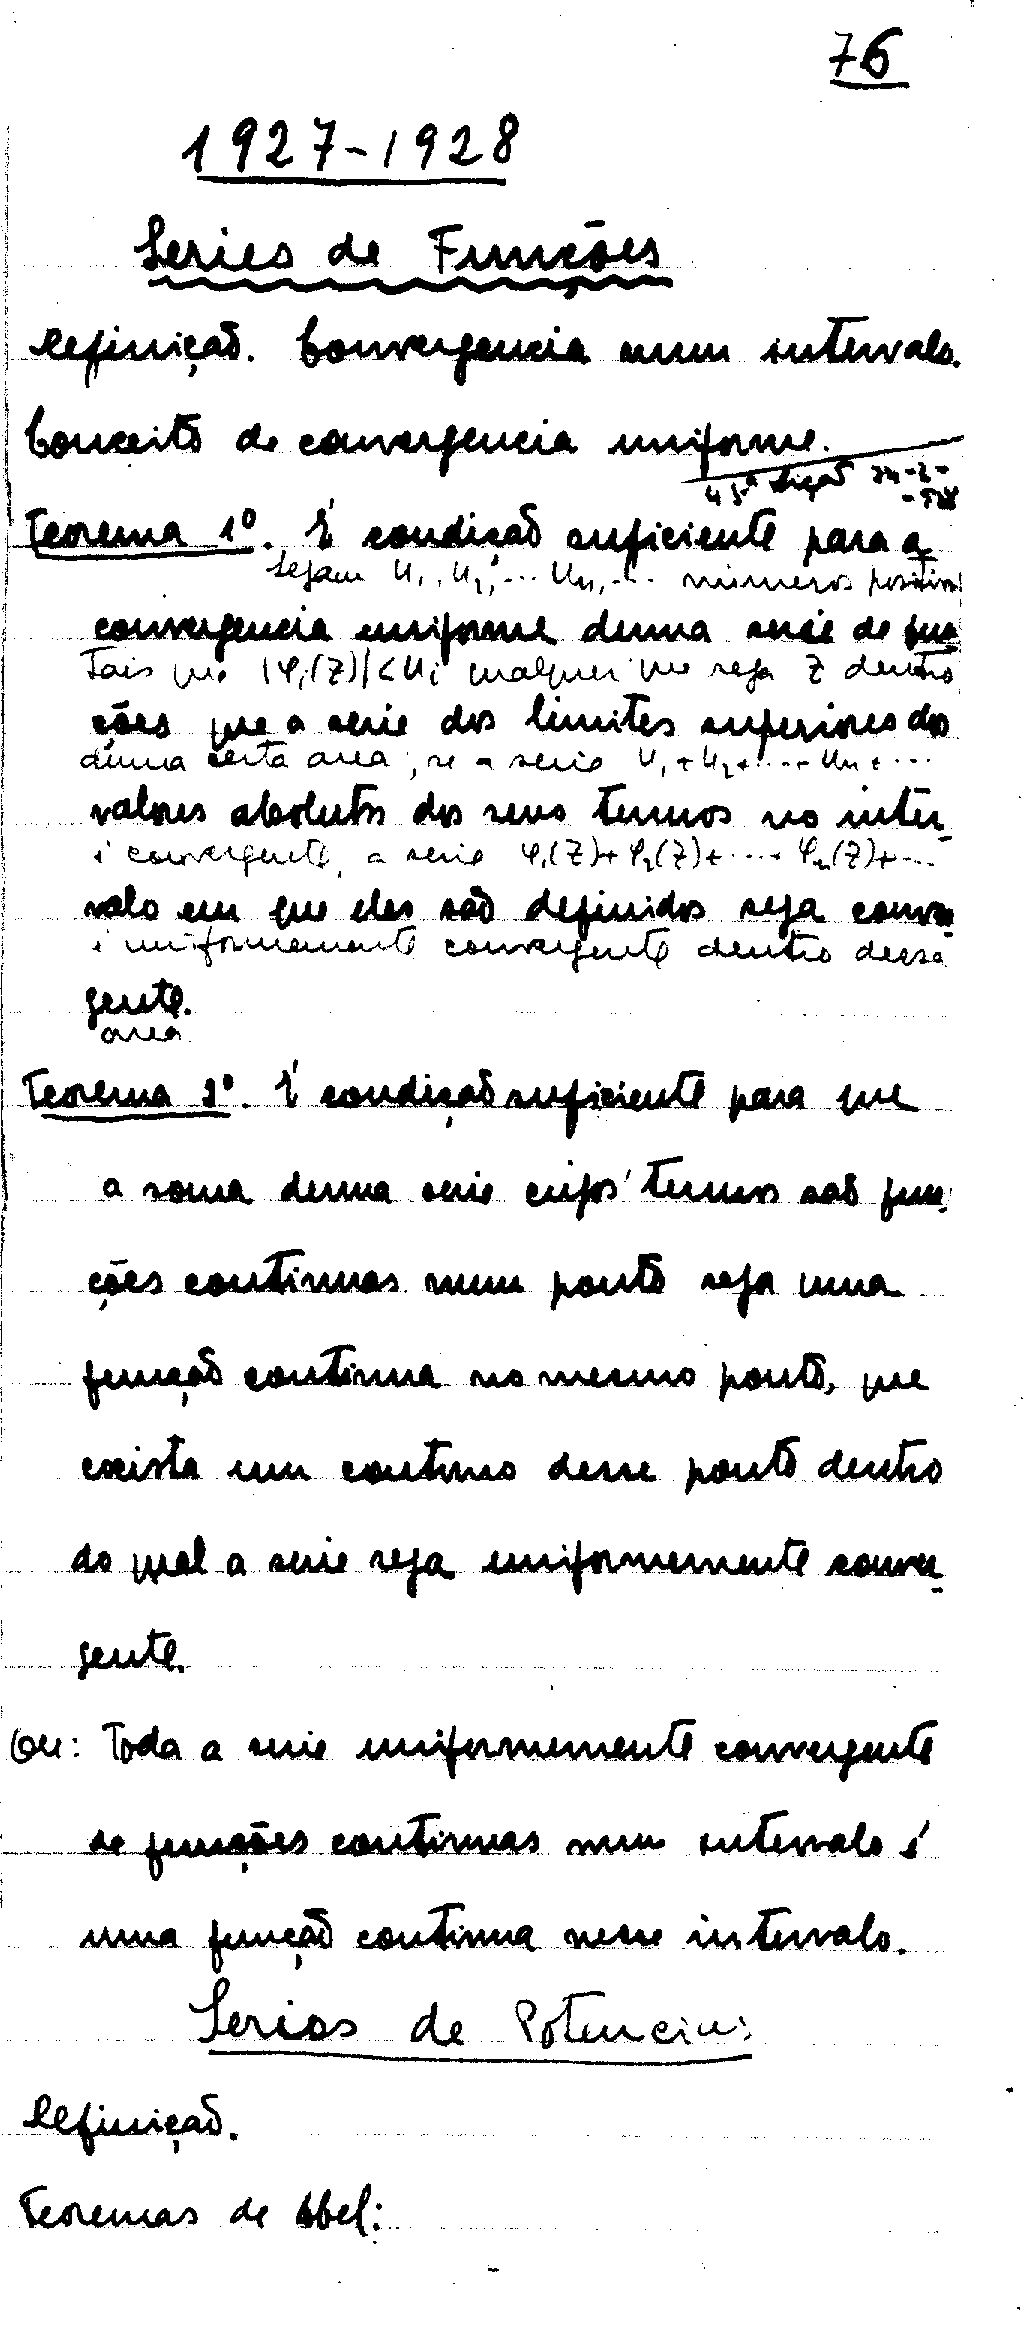 76
1927-1928
Series de Funções
Definição. Convergencia num intervalo.
Conceito de convergencia uniforme.
43ª Lição 24-2-
-928
Teorema 1º. É condição suficiente para a
Sejam U₁, U₂, ... Uₙ, ... números positivos
convergencia uniforme duma serie de fun
Tais que |φᵢ(Z)|<Uᵢ qualquer que seja Z dentro
ções que a serie dos limites superiores dos
duma certa area, se a serie U₁+U₂+...+Uₙ+...
valores absolutos dos seus termos no inter-
é convergente, a serie φ₁(Z)+φ₂(Z)+...+φₙ(Z)+...
valo em que eles são definidos seja conver
é uniformemente convergente dentro dessa
gente.
area
Teorema 2º. É condição suficiente para que
a soma duma serie cujos termos são fun-
ções continuas num ponto seja uma
função continua no mesmo ponto, que
exista um contorno desse ponto dentro
do qual a serie seja uniformemente conver-
gente.
Ou: Toda a serie uniformemente convergente
de funções continuas num intervalo é
uma função continua nesse intervalo.
Series de Potencias
Definição.
Teoremas de Abel: